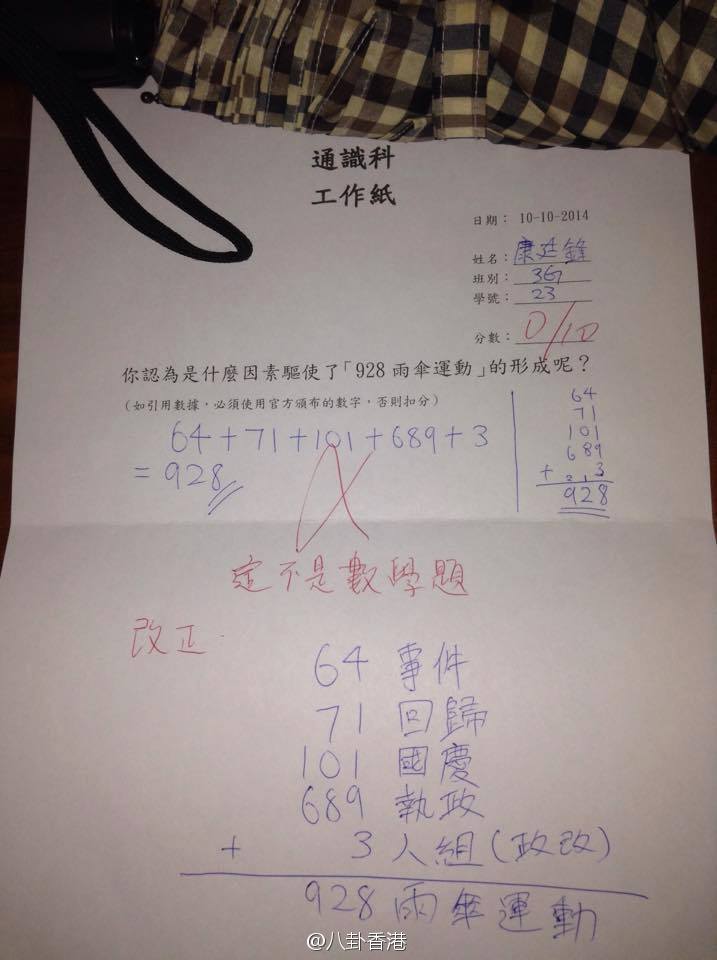 通識科
工作紙
日期： 10-10-2014
姓名：康廷鋒
班別：3G
學號：23
分數：0/10
你認為是什麼因素驅使了「928 雨傘運動」的形成呢？
(如引用數據，必須使用官方頒布的數字，否則扣分)
64+71+101+689+3
=928
64
71
101
689
+ 3
928
這不是數學題
改正
64 事件
71 回歸
101 國慶
689 執政
+ 3人組(政改)
928 雨傘運動
@八卦香港